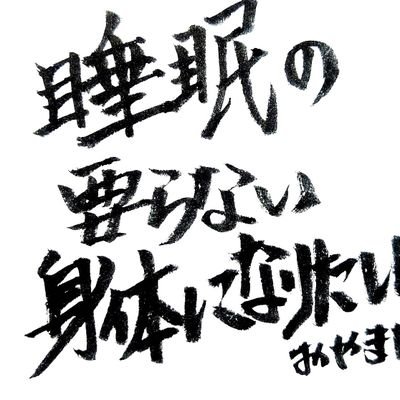 睡眠の
要らない
身体になりたい